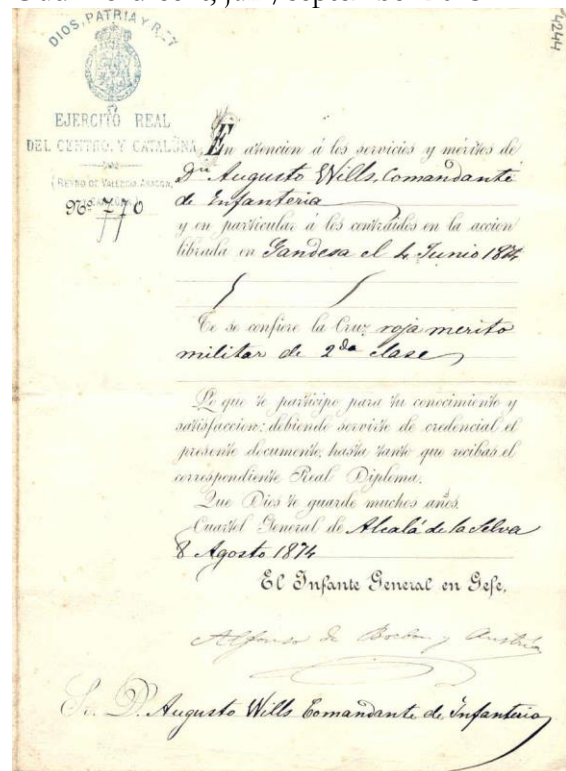 DIOS, PATRIA Y REY
4244
EJERCITO REAL
DEL CENTRO, Y CATALUÑA
(REYNO DE VALENCIA, ARAGON,
Nº 770
En atencion á los servicios y méritos de
Dn Augusto Wills, Comandante
de Infanteria
y en particular á los contraidos en la accion
librada en Gandesa el 4 Junio 1874
Te se confiere la Cruz roja merito
militar de 2da clase
Lo que te participo para tu conocimiento y
satisfaccion; debiendo servirte de credencial el
presente documento, hasta tanto que recibas el
correspondiente Real Diploma.
Que Dios te guarde muchos años.
Cuartel General de Alcalá de la Selva
8 Agosto 1874
El Infante General en Gefe,
Alfonso de Borbon y Austria
Sr. D. Augusto Wills Comandante de Infanteria